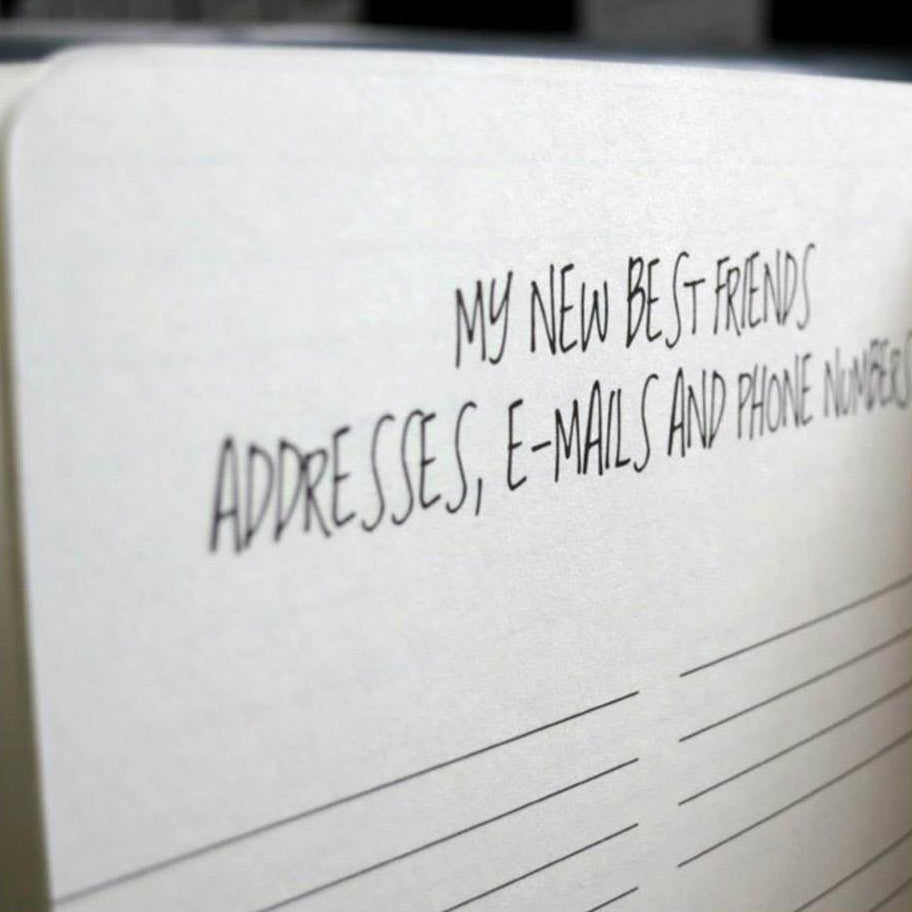 MY NEW BEST FRIENDS
ADDRESSES, E-MAILS AND PHONE NUMBERS